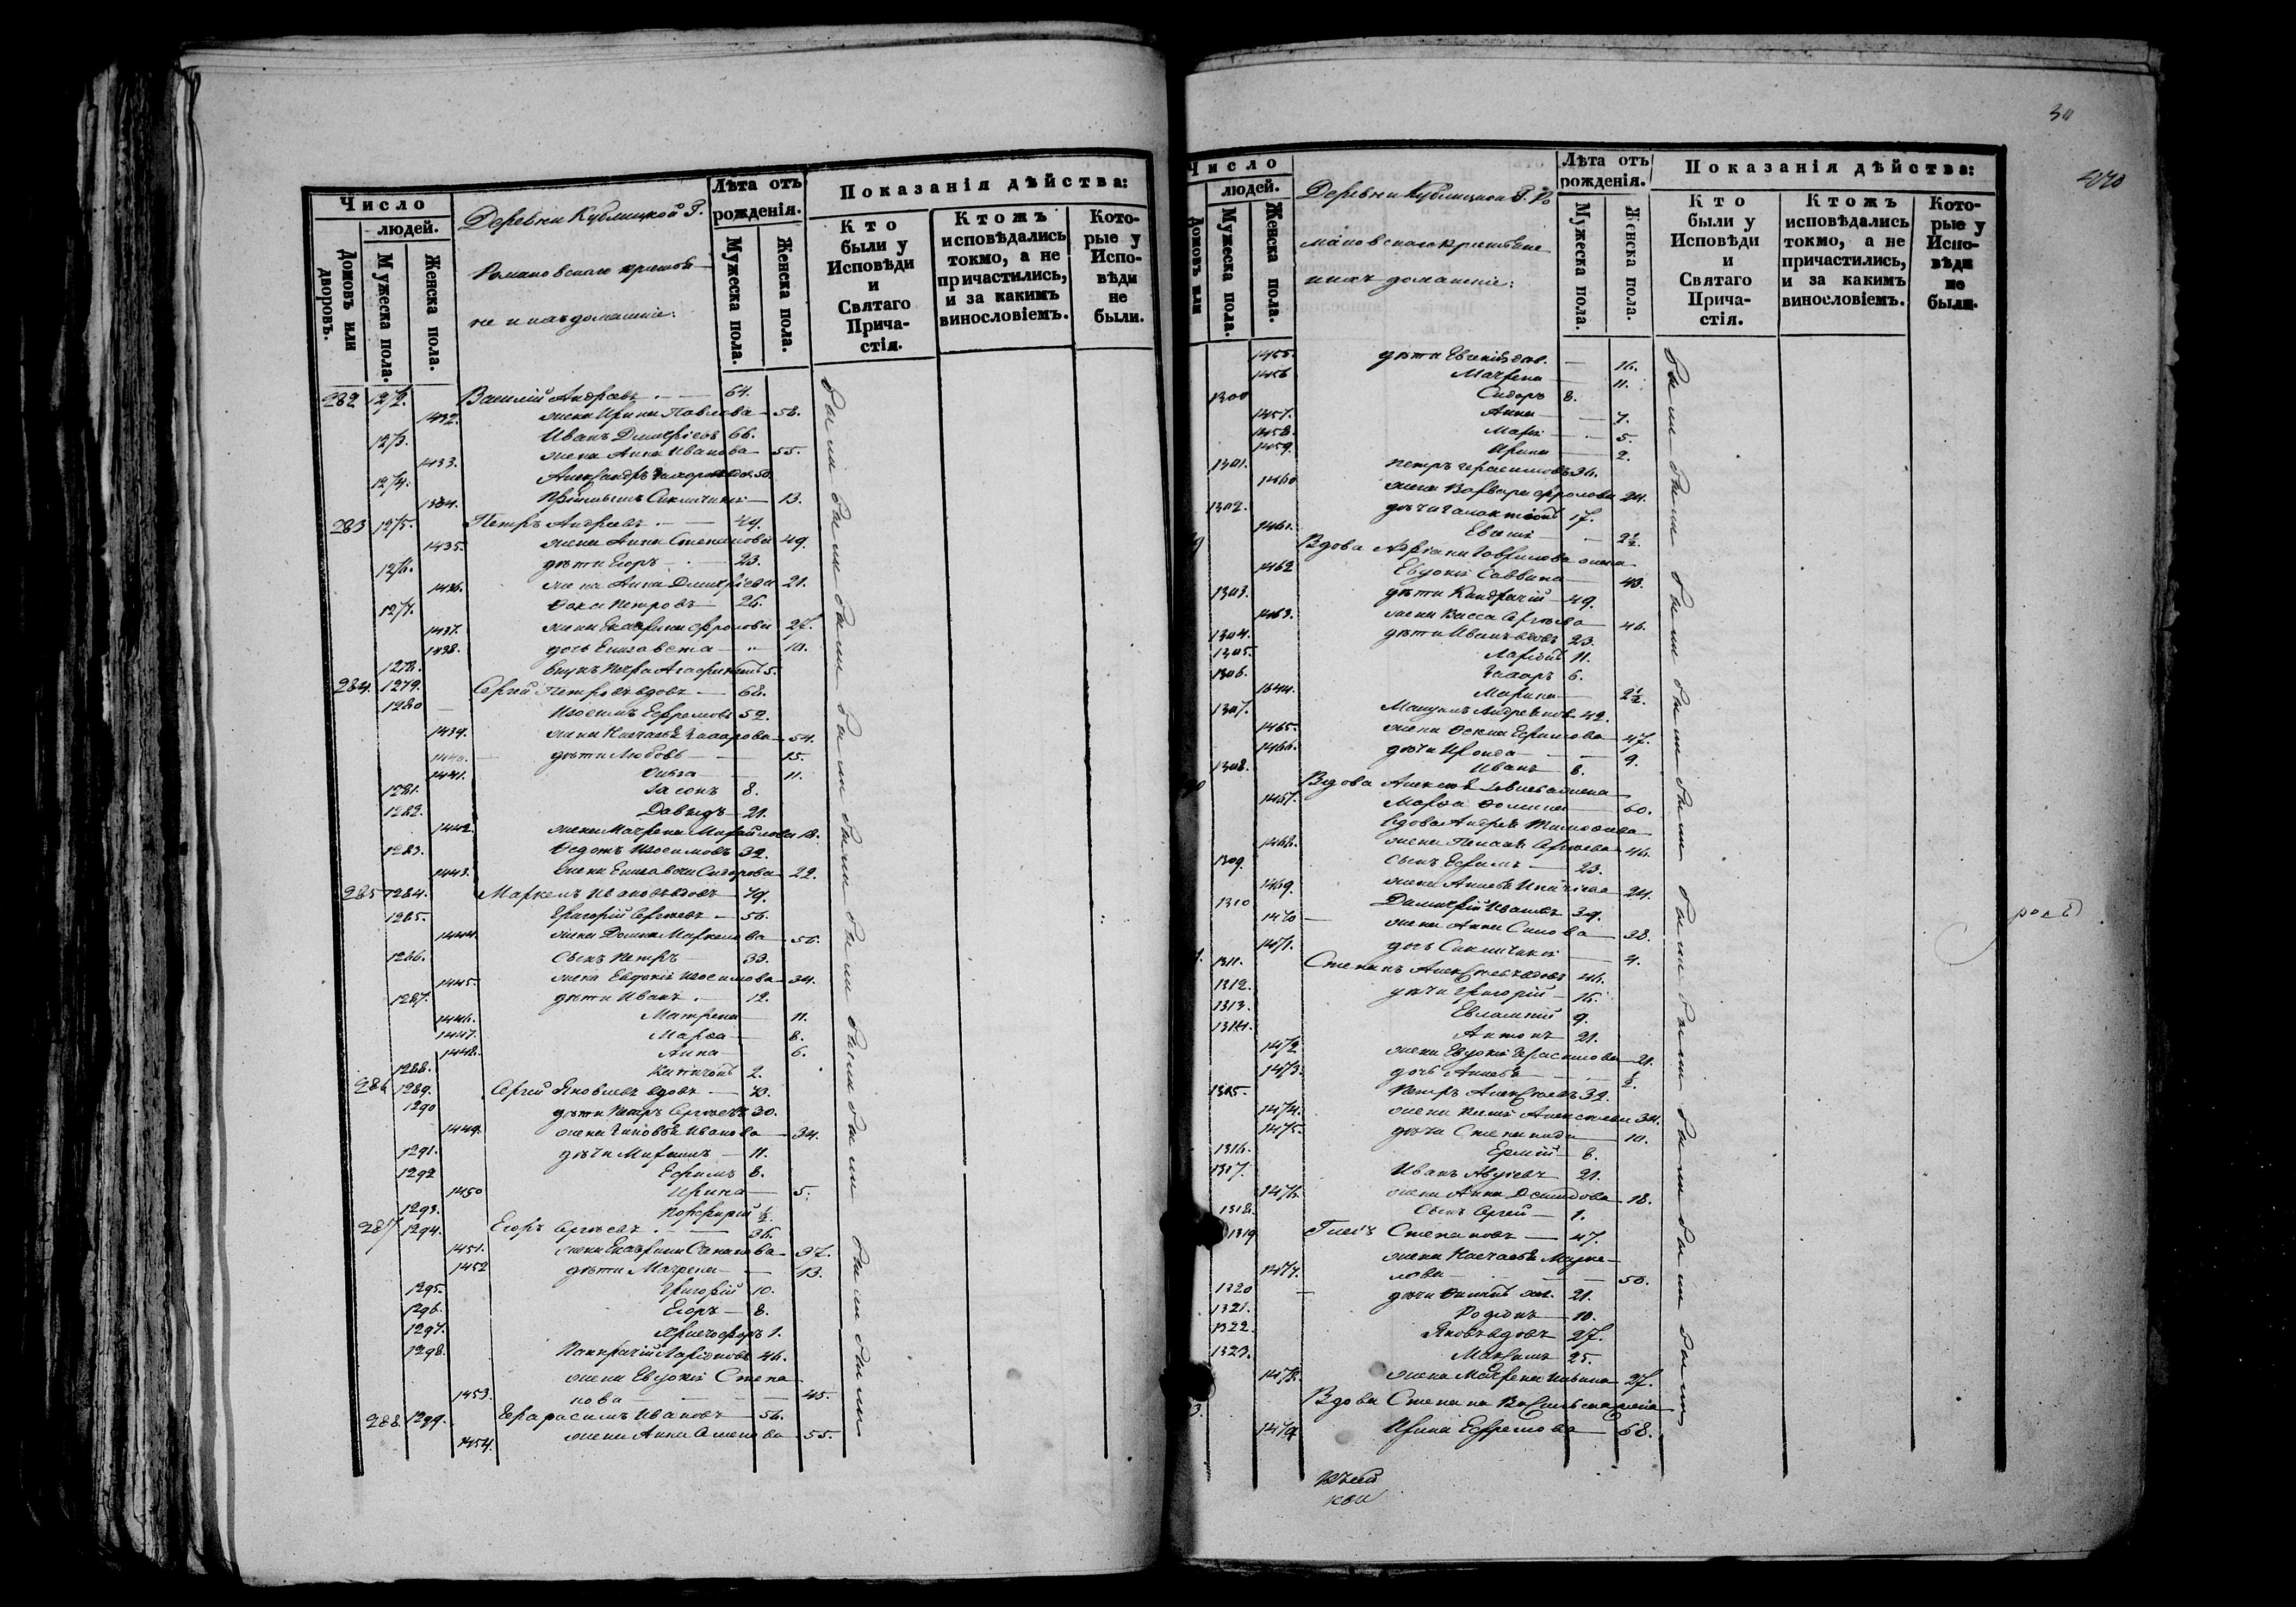 Число
людей.
Домовъ или дворовъ.
Мужеска пола.
Женска пола.
Деревни Кублицкой Г.
Романовскаго крестья-
не и ихъ домашніе:
Лѣта отъ рожденія.
Мужеска пола.
Женска пола.
Показанія дѣйства:
Кто были у Исповѣди и Святаго Прича-стія.
Ктожъ исповѣдались токмо, а не причастились, и за какимъ винословіемъ.
Кото-рые у Испо-вѣди не были.
282 1272. Василій Андреевъ 64.
1432. жена Ирина Павлова 58.
1273. Иванъ Дмитріевъ 66.
1433. жена Анна Иванова 55.
1274. Александръ 50.
1434. 13.
283 1275. Петръ Андреевъ 49.
1435. жена Анна Степанова 49.
1276. дѣти Егоръ 23.
1436. жена Анна Дмитріева 21.
1277. Ѳока Петровъ 26.
1437. жена Екатерина Фролова 27.
1438. дочь Елизавета 10.
1278. внукъ Петра 5.
284. 1279. Сергій Петровъ вдовъ 68.
1280 Изосимъ Ефремовъ 52.
1439. жена Настасья Захарова 54.
1440. дѣти Любовь 15.
1441. Ольга 11.
1281. Іасонъ 8.
1282. Давыдъ 21.
1442. жена Матрена Михайлова 18.
1283. Ѳедотъ Изосимовъ 32.
1443. жена Елизавета Сидорова 22.
285 1284. Маркелъ Ивановъ вдовъ 79.
1285. Григорій Сергѣевъ 56.
1444. жена Домна Маркелова 56.
1286. сынъ Петръ 33.
1445. жена Евдокія Изосимова 34.
1287. дѣти Иванъ 12.
1446. Матрена 11.
1447. Марѳа 8.
1448. Анна 6.
1288. 2.
286 1289. Сергій Яковлевъ вдовъ 70.
1290 дѣти Петръ Сергѣевъ 30.
1449. жена Зиновья Иванова 34.
1291. дѣти 11.
1292 Ефимъ 8.
1450 Ирина 5.
1293. Порфирій ½.
287 1294. Егоръ Сергѣевъ 36.
1451. жена Екатерина Степанова 37.
1452 дѣти Матрена 13.
1295. Григорій 10.
1296. Егоръ 8.
1297. Христофоръ 1.
1298. Панкратій Ларіоновъ 46.
жена Евдокія Степа
1453. нова 45.
288 1299. Герасимъ Ивановъ 56.
1454. жена Анна Семенова 55.
были были были были были были были были были были были были
30
Число
людей.
Домовъ или
Мужеска пола.
Женска пола.
Деревни Кублицкой Г. Ро
мановскаго крестьяне
и ихъ домашніе:
Лѣта отъ рожденія.
Мужеска пола.
Женска пола.
Показанія дѣйства:
Кто были у Исповѣди и Святаго Прича-стія.
Ктожъ исповѣдались токмо, а не причастились, и за какимъ винословіемъ.
Кото-рые у Испо-вѣди не были.
1455. дѣти Евгенія 16.
1456 Матрена 11.
1300 Сидоръ 8.
1457. Анна 7.
1458. Марія 5.
1459. Ирина 2.
1301. Петръ Герасимовъ 36.
1460 жена Варвара Фролова 24.
1302. дѣти Галактіонъ 17.
1461. Евгенія 2½.
Вдова Адріана Гаврилова жена
1462 Евдокія Саввина 43.
1303. дѣти Кондратій 49.
1463. жена Васса Сергѣева 46.
1304. дѣти Иванъ вдовъ 23.
1305. Ларіонъ 11.
1306. Захаръ 6.
1644. Марина 2½.
1307. 42.
1465. жена Ѳекла Ефимова 47.
1466. дѣти Ираида 9.
1308. Иванъ 8.
Вдова Алексѣя жена
1457. Марѳа Ѳомина 60.
вдова Андрея Тимоѳеева
1468. жена Пелагѣя Сергѣева 46.
1309. сынъ Ефимъ 23.
1469. жена 24.
1310 Дмитрій Ивановъ 39.
1470 жена Анна 38.
1471. дочь 4.
1311. Степанъ Алексѣевъ вдовъ 46.
1312. дѣти Григорій 16.
1313. Евлампій 9.
1314. Антонъ 21.
1472 жена Евдокія Герасимова 21.
1473. дочь ½.
1315. Петръ Алексѣевъ 32.
1474. жена Алексѣева 34.
1475. дѣти Степанида 10.
1316. Ермій 8.
1317. Иванъ 21.
1476. жена Анна Демидова 18.
1318. сынъ Сергей 1.
1319 Глебъ Степановъ 47.
жена Настасья Марке-
1477. лова 50.
1320 дѣти 21.
1321. Родіонъ 10.
1322. Яковъ вдовъ 27.
1323. Максимъ 25.
1478. жена Матрена Ильина 27.
Вдова Степана Васильева жена
1479 Ирина Ефремова 68.
были были были были были были были были были были были